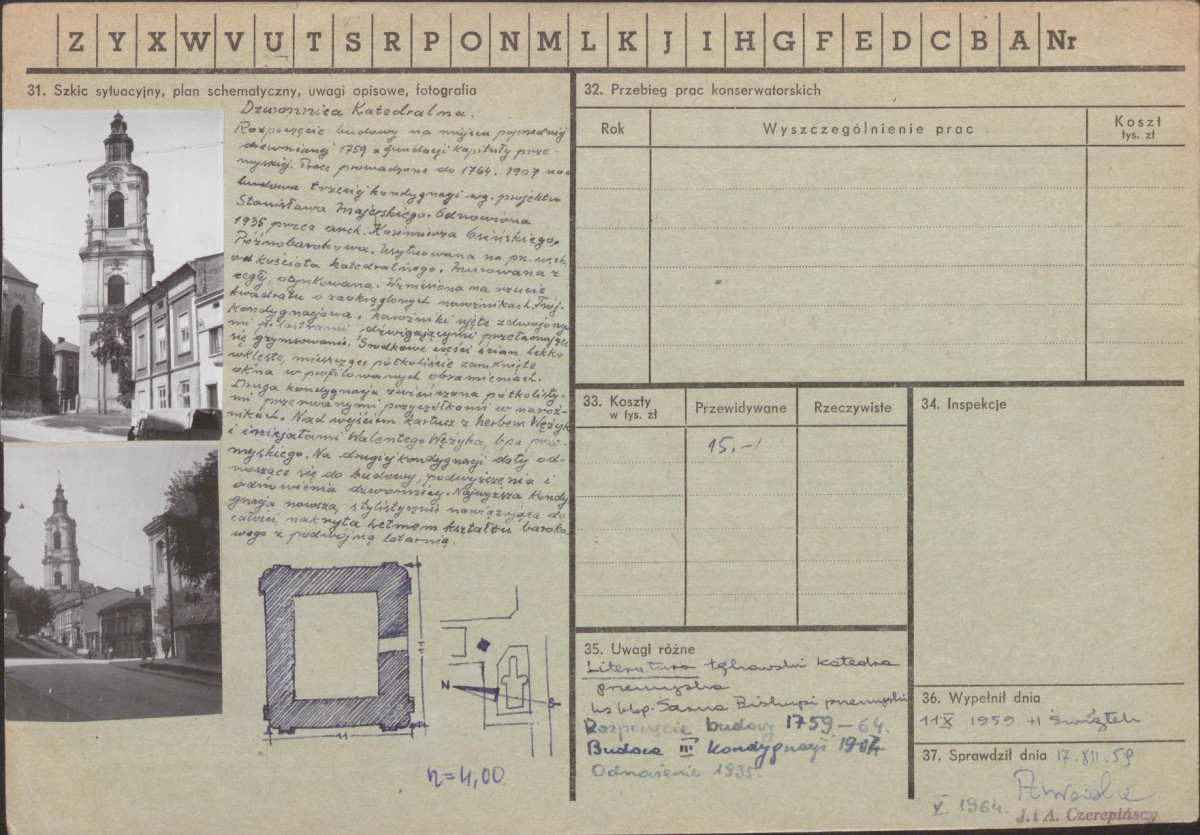 Z Y X W V U T S R P O N M L K J I H G F E D C B A Nr
31. Szkic sytuacyjny, plan schematyczny, uwagi opisowe, fotografia
Dzwonnica Katedralna.
Rozpoczęcie budowy na miejscu poprzedniej
drewnianej 1759 z fundacji kapituły prze-
myskiej. Prace prowadzone do 1764. 1907 nad
budowa trzeciej kondygnacji wg. projektu
Stanisława Majerskiego. Odnowiona
1935 przez arch. Kazimierza Osińskiego.
Późnobarokowa. Usytuowana na pn. wsch.
od kościoła katedralnego. Murowana z
cegły, otynkowana. Wzniesiona na rzucie
kwadratu o zaokrąglonych narożnikach. Trój-
kondygnacjowa. Narożniki ujęte zdwojony-
mi pilastrami dźwigającymi przełamujące
się gzymsowanie. Środkowe części ścian lekko
wklęsłe, mieszczące półkoliście zamknięte
okna w profilowanych obramieniach.
Druga kondygnacja zwieńczona półkolisty-
mi przerwanymi przyczółkami w naroż-
nikach. Nad wejściem kartusz z herbem Wężyk
i inicjałami Walentego Wężyka, bpa prze-
myskiego. Na drugiej kondygnacji daty od-
noszące się do budowy, podwyższenia i
odnowienia dzwonnicy. Najwyższa kondy
gnacja nowsza, stylistycznie nawiązująca do
całości, nakryta hełmem kształtu baroko
wego z podwójną latarnią.
11
11
N
S
h=4,00
32. Przebieg prac konserwatorskich
Rok
Wyszczególnienie prac
Koszt
tys. zł
33. Koszty
w tys. zł
Przewidywane
Rzeczywiste
15.-
34. Inspekcje
35. Uwagi różne
Literatura katedra
przemyska
ks bkp. Sarna Biskupi przemyski
Rozpoczęcie budowy 1759-64.
Budowa III kondygnacji 1907
Odnowienie 1935.
36. Wypełnił dnia
11 X 1959
37. Sprawdził dnia 17.XII.59
V. 1964.
J. i A. Czerepińscy